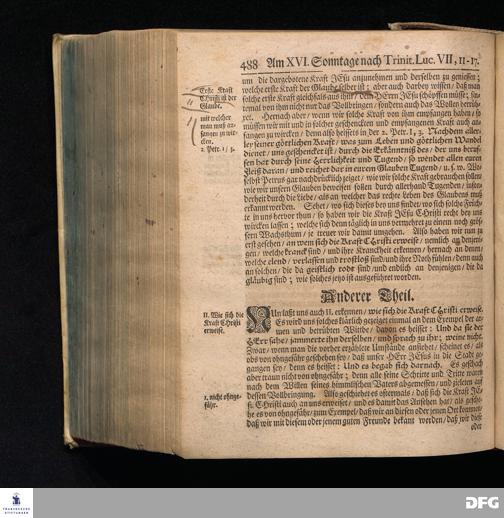 488 Am XVI. Sonntage nach Trinit. Luc. VII, 11-17.
um die dargebotene Krafft JEsu anzunehmen und derselben zu geniessen;
welche erste Krafft der Glaube selber ist; aber auch darbey wissen/ daß man
solche erste Krafft gleichfals aus ihm/ dem HErrn JEsu schöpffen müsse/
temal von ihm nicht nur das Vollbringen/ sondern auch das Wollen
Hernach aber/ wenn wir solche Krafft von ihm empfangen haben/ so
müssen wir mit und in solcher geschenckten und empfangenen Krafft auch an-
fangen zu wircken/ denn also heisset es in der 2. Petr. 1, 3. Nachdem aller-
ley seiner göttlichen Krafft/ was zum Leben und göttlichen Wandel
dienet/ uns geschencket ist/ durch die Erkäntniß des/ der uns beruf-
fen hat durch seine Herrlichkeit und Tugend/ so wendet allen euren
Fleiß daran/ und reichet dar in eurem Glauben Tugend/ u. s. w.
selbst Petrus gar nachdrücklich zeiget/ wie wir solche Krafft gebrauchen sollen/
wie wir unsern Glauben beweisen sollen durch allerhand Tugenden/ inson-
derheit durch die Liebe/ als an welcher das rechte Leben des Glaubens muß
erkannt werden. Sehet/ wo sich dieses bey uns findet/ wo sich solche Früch-
te in uns hervor thun/ so haben wir die Krafft JEsu Christi recht bey uns
wircken lassen; welche sich denn täglich in uns vermehret zu einem noch grös-
sern Wachsthum/ je treuer wir damit umgehen. Also haben wir nun zu
erst gesehen/ an wem sich die Krafft Christi erweise/ nemlich an denenje-
gen/ welche kranck sind/ und ihre Kranckheit erkennen/ hernach an denen/
welche elend/ verlassen und trostloß sind/ und ihre Noth fühlen/ denn auch
an solchen/ die da geistlich todt sind/ und endlich an denjenigen/ die da
gläubig sind; wie solches jetzo ist ausgeführet worden.
Erste Krafft
Christi ist der
Glaube.
mit welcher
man muß an-
fangen zu wir-
cken.
2. Petr. 1, 3.
Anderer Theil.
II. Wie sich die
Krafft Christi
erweise.
NUn laßt uns auch II. erkennen/ wie sich die Krafft Christi erweise.
Es wird uns solches klärlich gezeiget einmal an dem Exempel der ar-
men und betrübten Wittbe/ davon es heisset: Und da sie der
HErr sahe/ jammerte ihn derselben/ und sprach zu ihr: weine nicht.
Zwar/ wenn man die vorher erzählte Umstände ansiehet/ scheinet es/ als
ob von ohngefähr geschehen sey/ daß unser HErr JEsus in die Stadt ge-
gangen sey/ denn es heisset: Und es begab sich darnach. Es geschah
aber traun nicht von ohngefähr; denn alle seine Schritte und Tritte waren
nach dem Willen seines himmlischen Vaters abgemessen/ und zieleten auf
dessen Vollbringung. Also geschiehet es oftermals/ daß sich die Krafft JE-
su Christi auch an uns erweiset/ und es damit das Ansehen hat/ als gesche-
he es von ohngefähr/ zum Exempel/ daß wir an diesen oder jenen Ort kommen/
daß wir mit diesem oder jenem guten Freunde bekant werden/ daß wir diese
oder
1. nicht ohnge-
fähr.
FRANCKESCHE
STIFTUNGEN
DFG